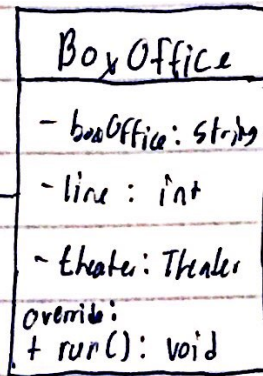 BoxOffice
- boxOffice: string
- line : int
- theater: Theater
override:
+ run(): void